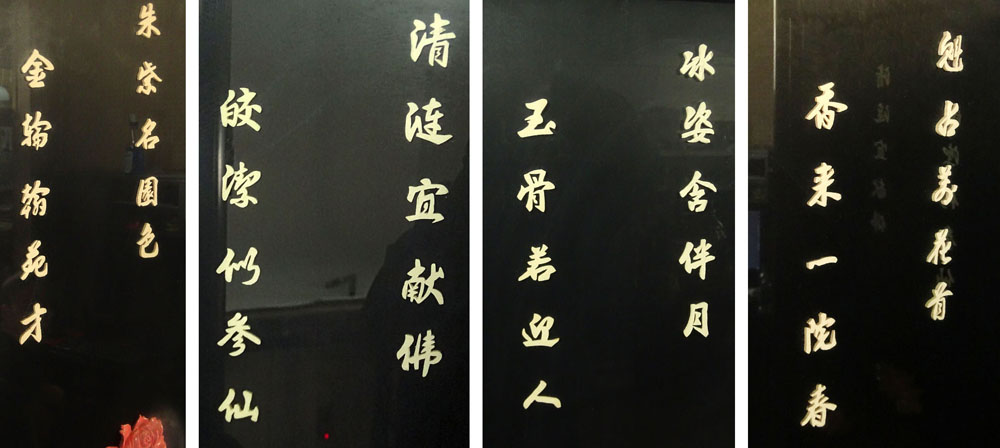 朱紫名園色
金輪翰苑才
清涟宜献佛
皎潔似参仙
冰姿含伴月
玉骨若迎人
魁占萬花首
香来一院春